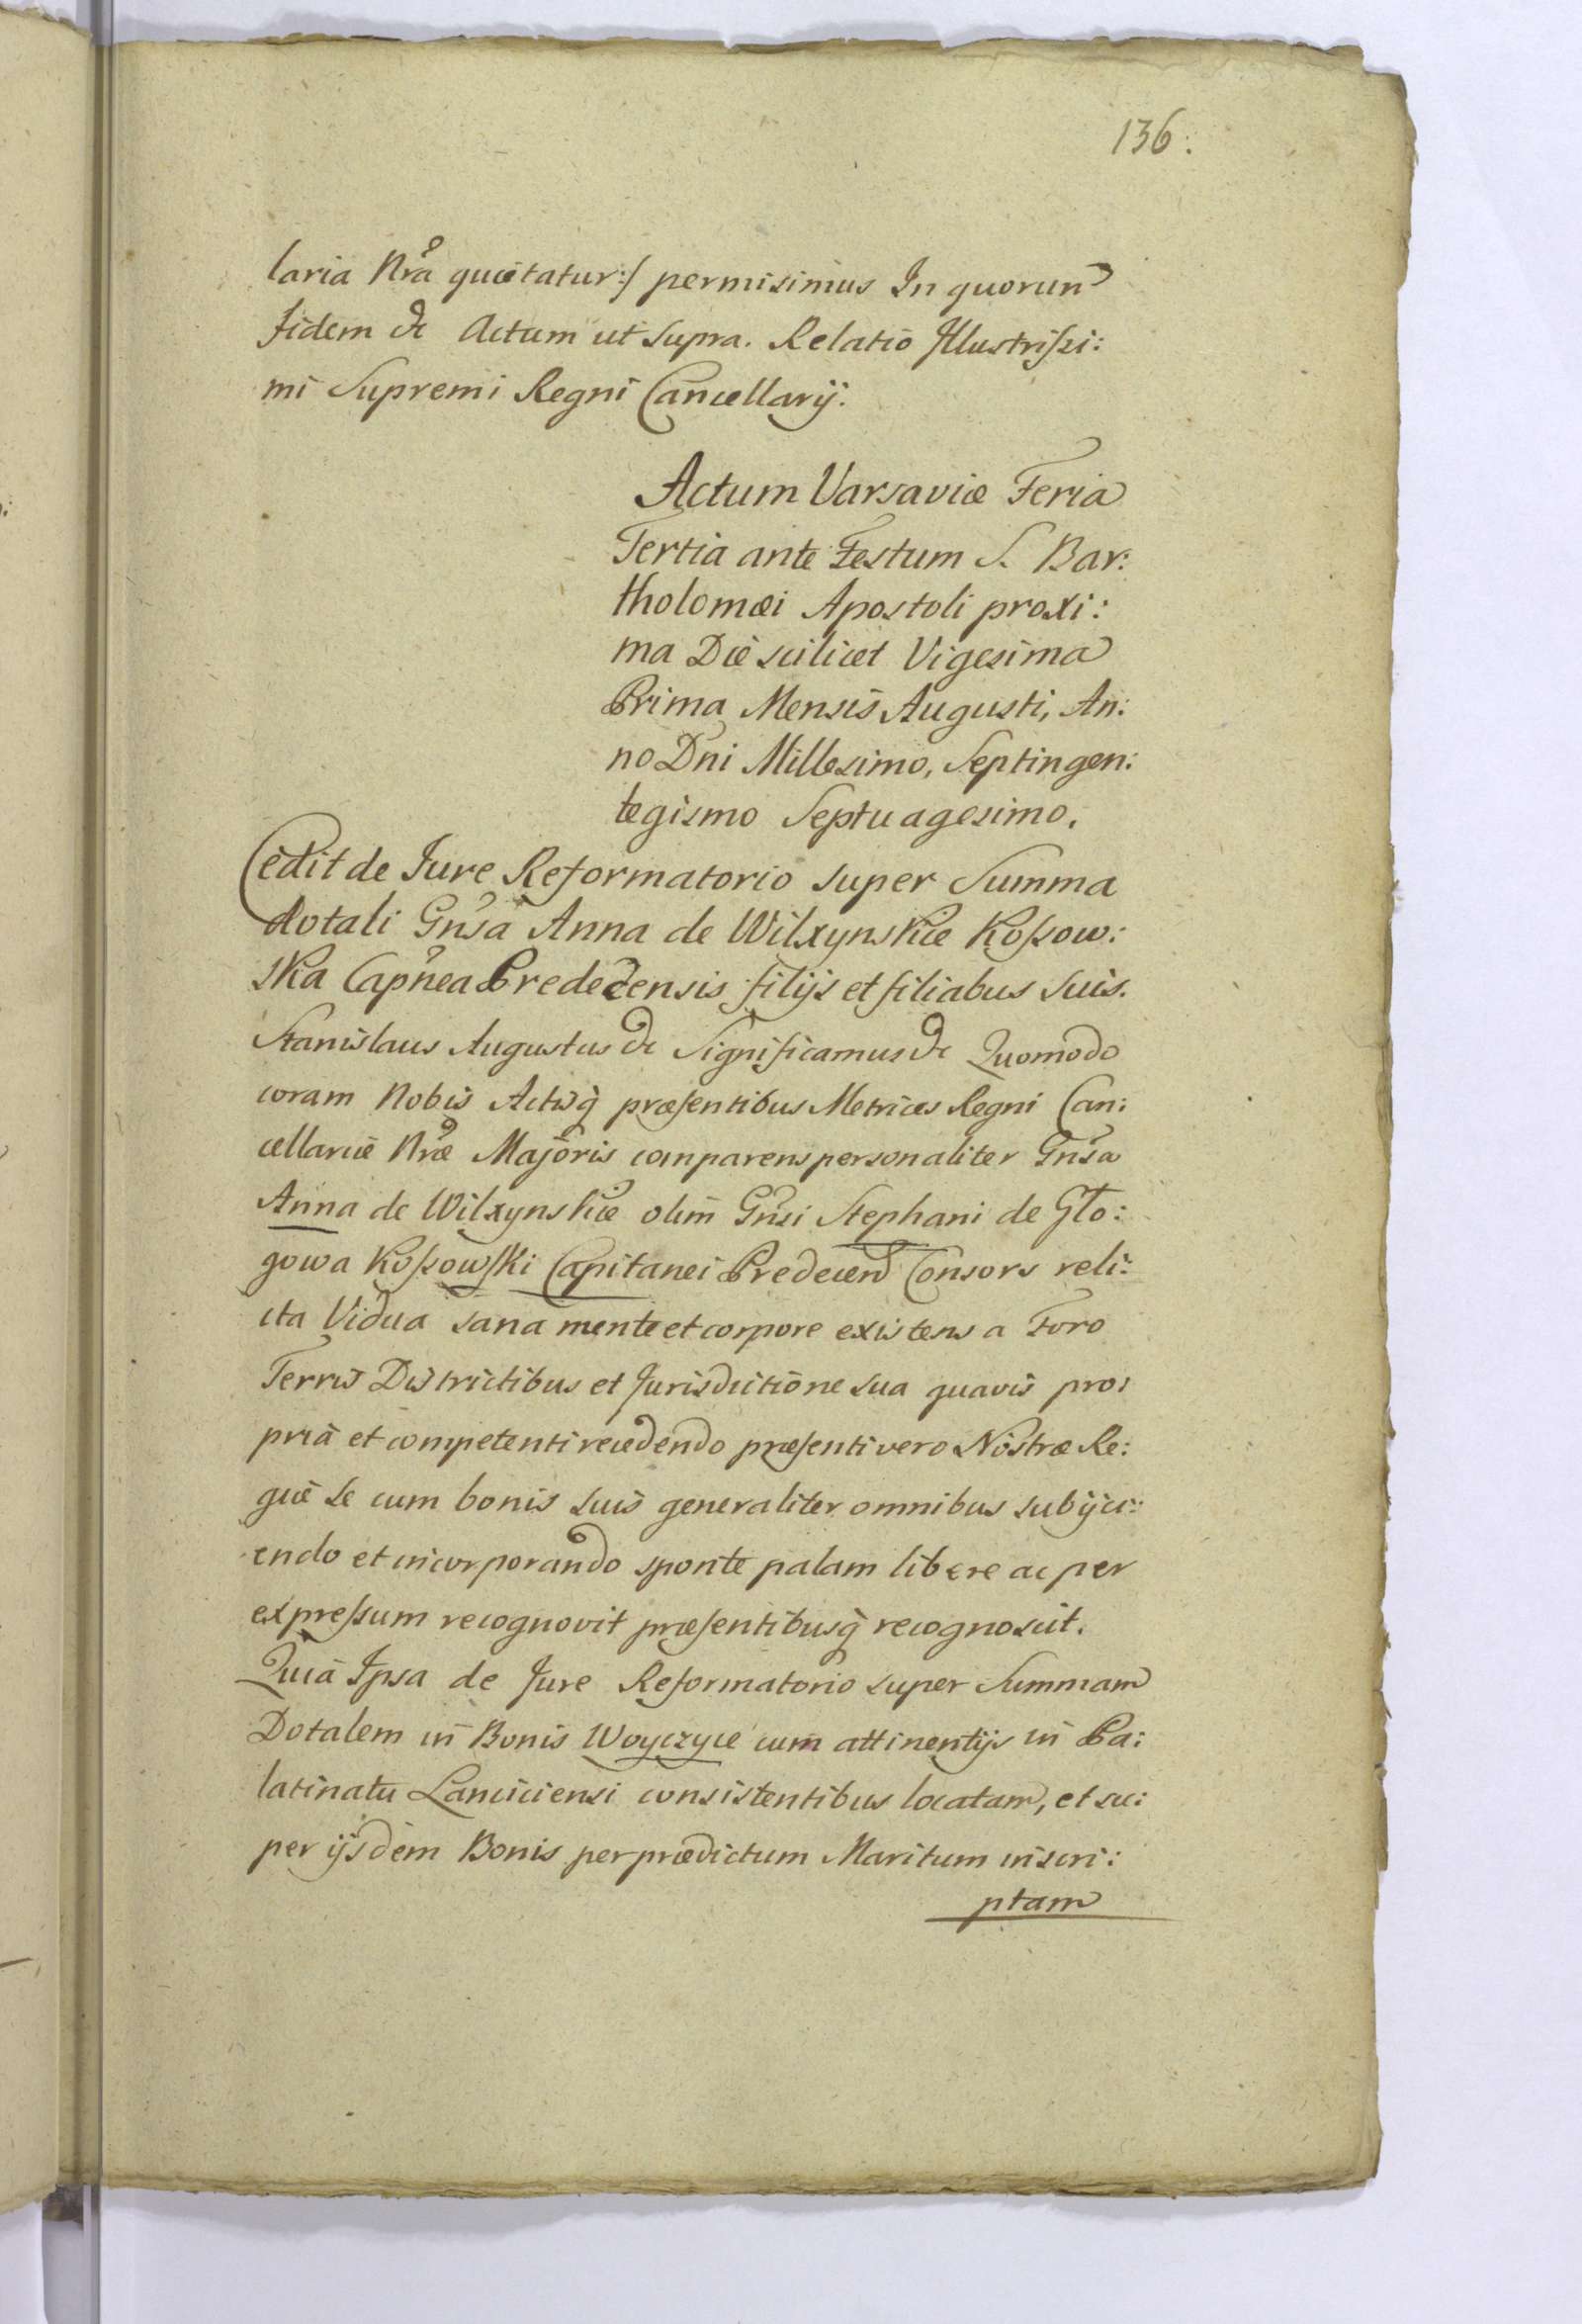 136:
laria Nrâ quietatur:/ permisimus In quorum
fidem &c Actum ut supra. Relatio Illustrissi:
mi Supremi Regni Cancellarij:
Actum Varsaviæ Feria
Tertia ante Festum S. Bar:
tholomæi Apostoli proxi:
ma Die scilicet Vigesima
Prima Mensis Augusti, An:
no Dni Millesimo, Septingen:
tegismo Septuagesimo.
Cedit de Jure Reformatorio super Summa
dotali Gnsa Anna de Wilxynskie Kossow:
ska Capnea Predecensis filijs et filiabus suis.
Stanislaus Augustus &c Significamus &c Quomodo
coram Nobis Actisq præsentibus Metrices Regni Can:
cellariæ Nræ Majoris comparens personaliter Gnsa
Anna de Wilxynskie olim Gnsi Stephani de Glo:
gowa Kossowski Capitanei Predecen Consors reli:
cta Vidua sana mente et corpore existens a Foro
Terris Districtibus et Jurisdictione sua quavis pro:
pria et competenti recedendo præsenti vero Nostræ Re:
giæ se cum bonis suis generaliter omnibus subijci:
endo et incorporando sponte palam libere ac per
expressum recognovit præsentibusq recognoscit.
Quia Ipsa de Jure Reformatorio super Summam
Dotalem in Bonis Woyczyce cum attinentijs in Pa:
latinatu Lanciciensi consistentibus locatam, et su:
per ijsdem Bonis per prædictum Maritum inscri:
ptam